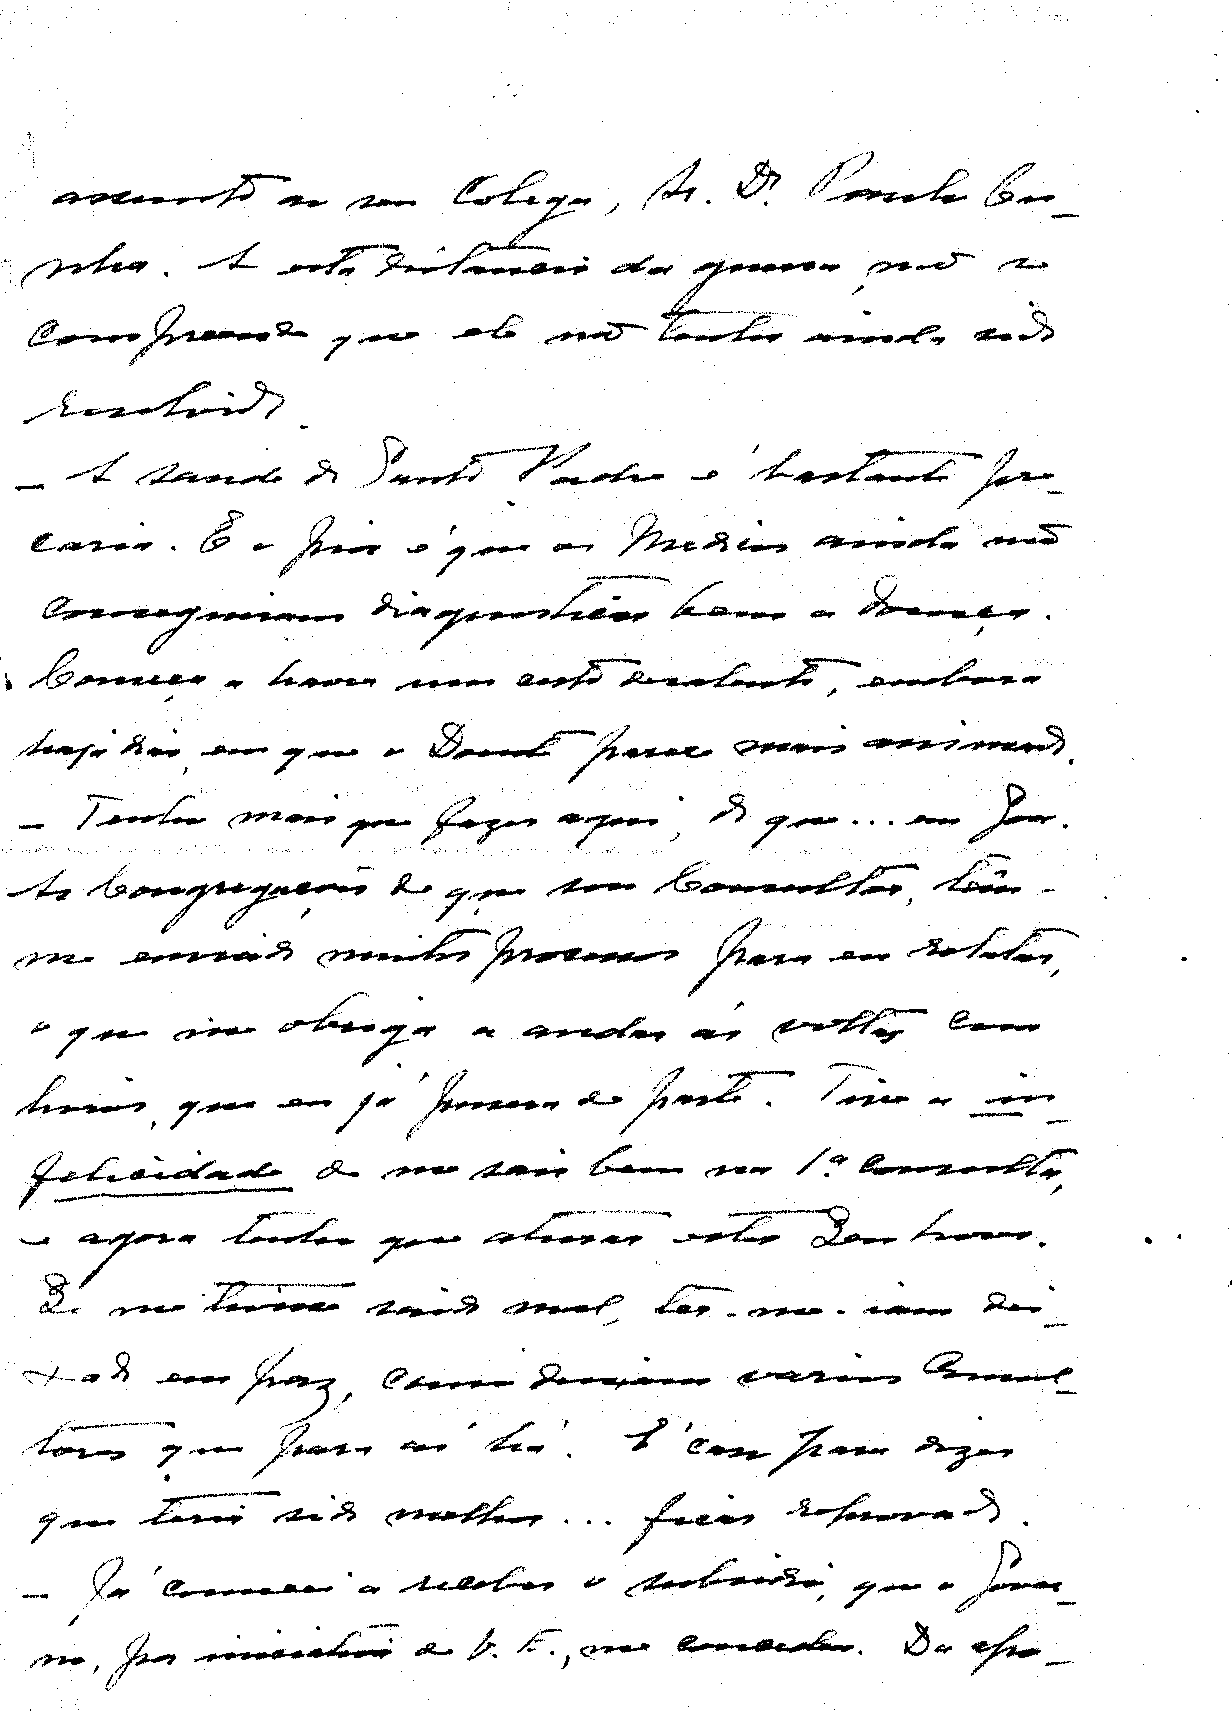 assunto ao seu Colega, Sr. Dr. Paulo Cu-
nha. A esta distancia da guerra, não se
compreende que ele não tenha ainda sido
resolvido.
- A saude do Santo Padre é bastante pre-
caria. E o pior é que os Medicos ainda não
conseguiram diagnosticar bem a doença.
Começa a haver um certo desalento, embora
haja dias em que o Doente parece mais animado.
- Tenho mais que fazer aqui, do que... em Goa.
As Congregações de que sou Consultor, têm-
me enviado muitos processos para eu relatar,
o que me obriga a andar ás voltas com
livros, que eu já pusera de parte. Tive a in-
felicidade de me sair bem na 1ª consulta,
e agora tenho que aturar estes Senhores.
Se me tivesse saido mal, ter-me-iam dei-
xado em paz, como deixam varios Consul-
tores que para aí há. É caso para dizer
que teria sido melhor... ficar reprovado.
- Já comecei a receber o subsidio, que o Gover-
no, por iniciativa de V. E., me concedeu. Da